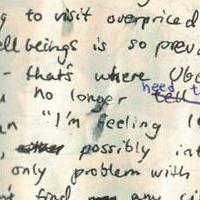 to visit overpriced
ell beings is so prev
- that's where Ub
no longer need t
"I'm feeling
possibly in
only problem with
find any ci